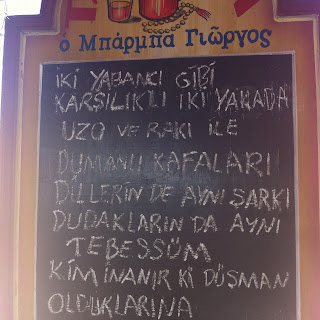 ὁ Μπάρμπα Γιῶργος
İKİ YABANCI GİBİ
KARŞILIKLI İKİ YAKADA
UZO VE RAKI İLE
DUMANLI KAFALARI
DİLLERİN DE AYNI ŞARKI
DUDAKLARIN DA AYNI
TEBESSÜM
KİM İNANIR Kİ DÜŞMAN
OLDUKLARINA